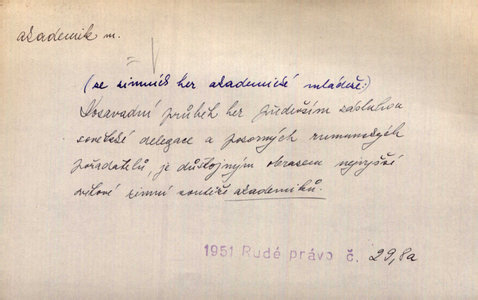 akademik m.
(se zimních her akademické mládeže:)
Dosavadní průběh her především zásluhou
sovětské delegace a pozorných rumunských
pořadatelů, je důstojným obrazem nejvyšší
světové zimní soutěže akademiků.
1951 Rudé právo č. 29,8a